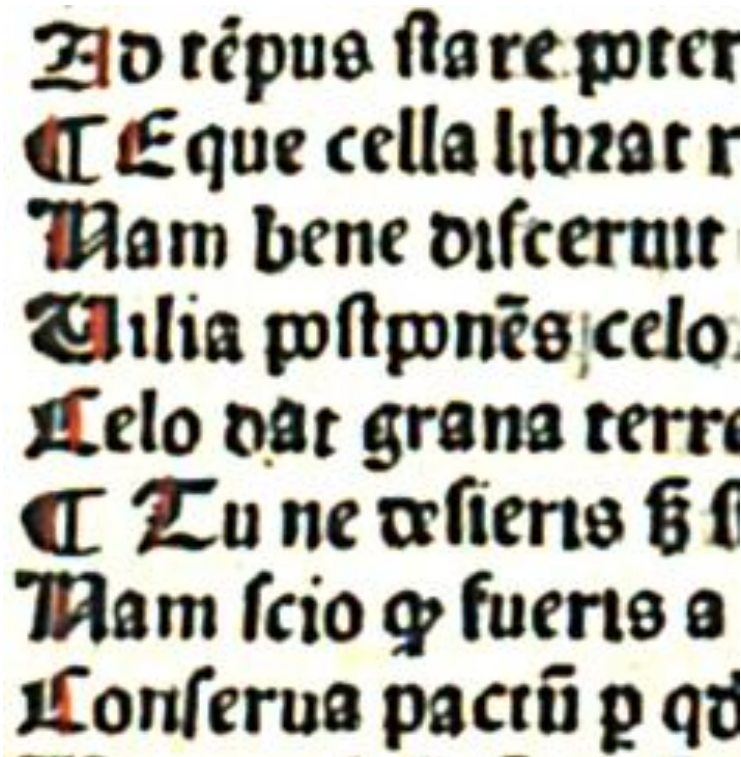 Ad tēpus ſtare poter
¶ Eque cella librat r
Nam bene diſcernit
Uilia poſtponēs celo
Celo dat grana terre
¶ Tu ne deſieris ſꝫ ſi
Nam ſcio ꝙ fueris a
Conſerua pactū ꝑ qd